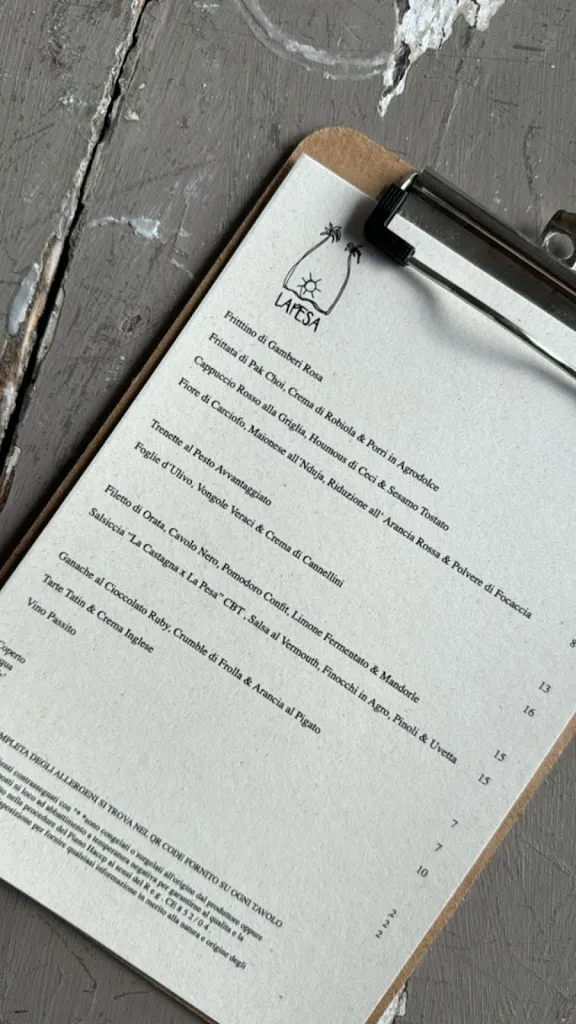 LAPESA
Frittino di Gamberi Rosa
Frittata di Pak Choi, Crema di Robiola & Porri in Agrodolce
Cappuccio Rosso alla Griglia, Houmous di Ceci & Sesamo Tostato
Fiore di Carciofo, Maionese all'Nduja, Riduzione all' Arancia Rossa & Polvere di Focaccia 8
Trenette al Pesto Avvantaggiato 13
Foglie d'Ulivo, Vongole Veraci & Crema di Cannellini 16
Filetto di Orata, Cavolo Nero, Pomodoro Confit, Limone Fermentato & Mandorle 15
Salsiccia "La Castagna x La Pesa" CBT , Salsa al Vermouth, Finocchi in Agro, Pinoli & Uvetta 15
Ganache al Cioccolato Ruby, Crumble di Frolla & Arancia al Pigato 7
Tarte Tatin & Crema Inglese 7
Vino Passito 10
Coperto 2
2
2
DEGLI ALLERGENI SI TROVA NEL QR CODE FORNITO SU OGNI TAVOLO
contrassegnati con "* "sono congelati o surgelati all'origine dal produttore oppure
in loco ad abbattimento a temperatura negativa per garantirne al qualita e la
nelle procedure del Piano Haccp ai sensi del R e g . CE 8 5 2 / 0 4
per fornire qualsiasi informazione in merito alla natura e origine degli